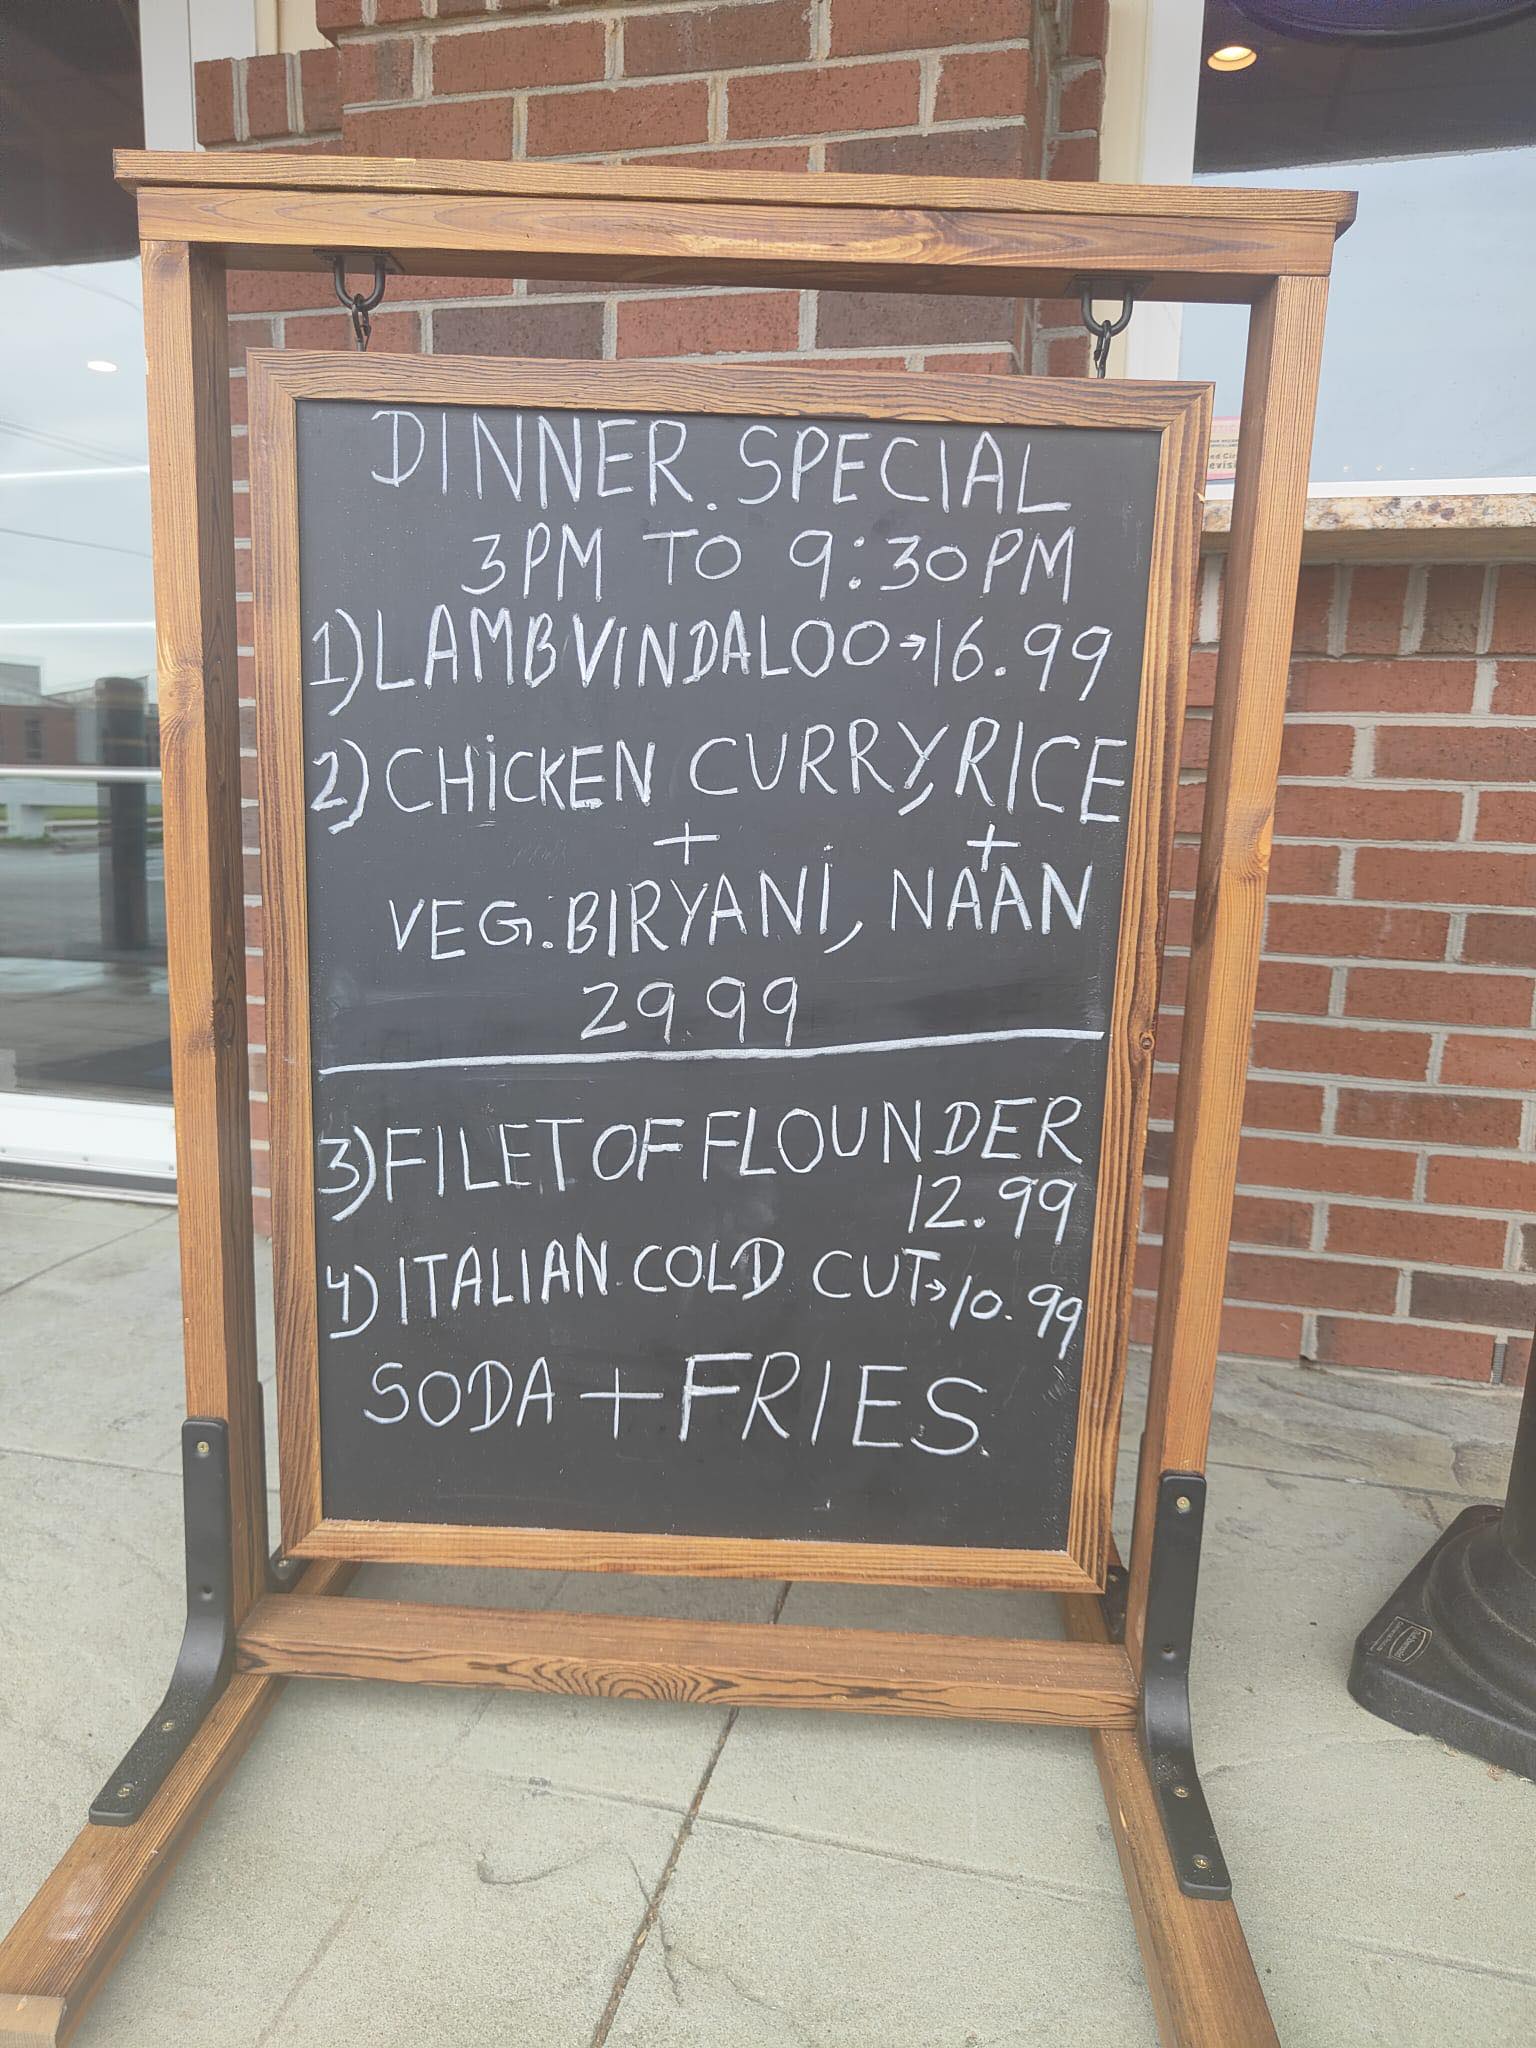 DINNER. SPECIAL
3PM TO 9:30PM
1) LAMB VINDALOO → 16.99
2) CHICKEN CURRY, RICE
+ +
VEG. BIRYANI, NAAN
29 99
3) FILET OF FLOUNDER
12.99
4) ITALIAN COLD CUT → 10.99
SODA + FRIES.